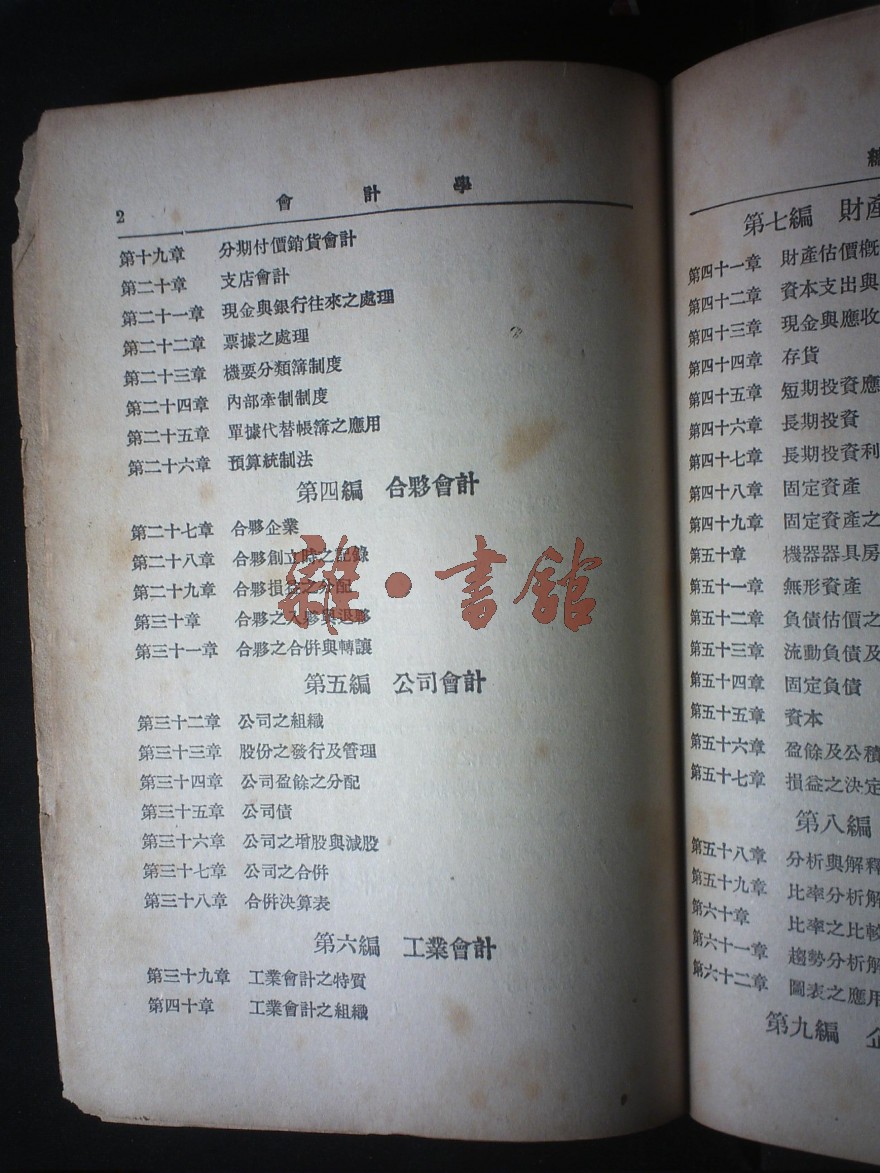 2 會計學
第十九章 分期付價銷貨會計
第二十章 支店會計
第二十一章 現金與銀行往來之處理
第二十二章 票據之處理
第二十三章 機要分類簿制度
第二十四章 內部牽制制度
第二十五章 單據代替帳簿之應用
第二十六章 預算統制法
第四編 合夥會計
第二十七章 合夥企業
第二十八章 合夥創立時之記錄
第二十九章 合夥損益之分配
第三十章 合夥之入夥與退夥
第三十一章 合夥之合併與轉讓
第五編 公司會計
第三十二章 公司之組織
第三十三章 股份之發行及管理
第三十四章 公司盈餘之分配
第三十五章 公司債
第三十六章 公司之增股與減股
第三十七章 公司之合併
第三十八章 合併決算表
第六編 工業會計
第三十九章 工業會計之特質
第四十章 工業會計之組織
雜·書館
總
第七編 財產
第四十一章 財產估價概
第四十二章 資本支出與
第四十三章 現金與應收
第四十四章 存貨
第四十五章 短期投資應
第四十六章 長期投資
第四十七章 長期投資利
第四十八章 固定資產
第四十九章 固定資產之
第五十章 機器器具房
第五十一章 無形資產
第五十二章 負債估價之
第五十三章 流動負債及
第五十四章 固定負債
第五十五章 資本
第五十六章 盈餘及公積
第五十七章 損益之決定
第八編
第五十八章 分析與解釋
第五十九章 比率分析解
第六十章 比率之比較
第六十一章 趨勢分析解
第六十二章 圖表之應用
第九編 企